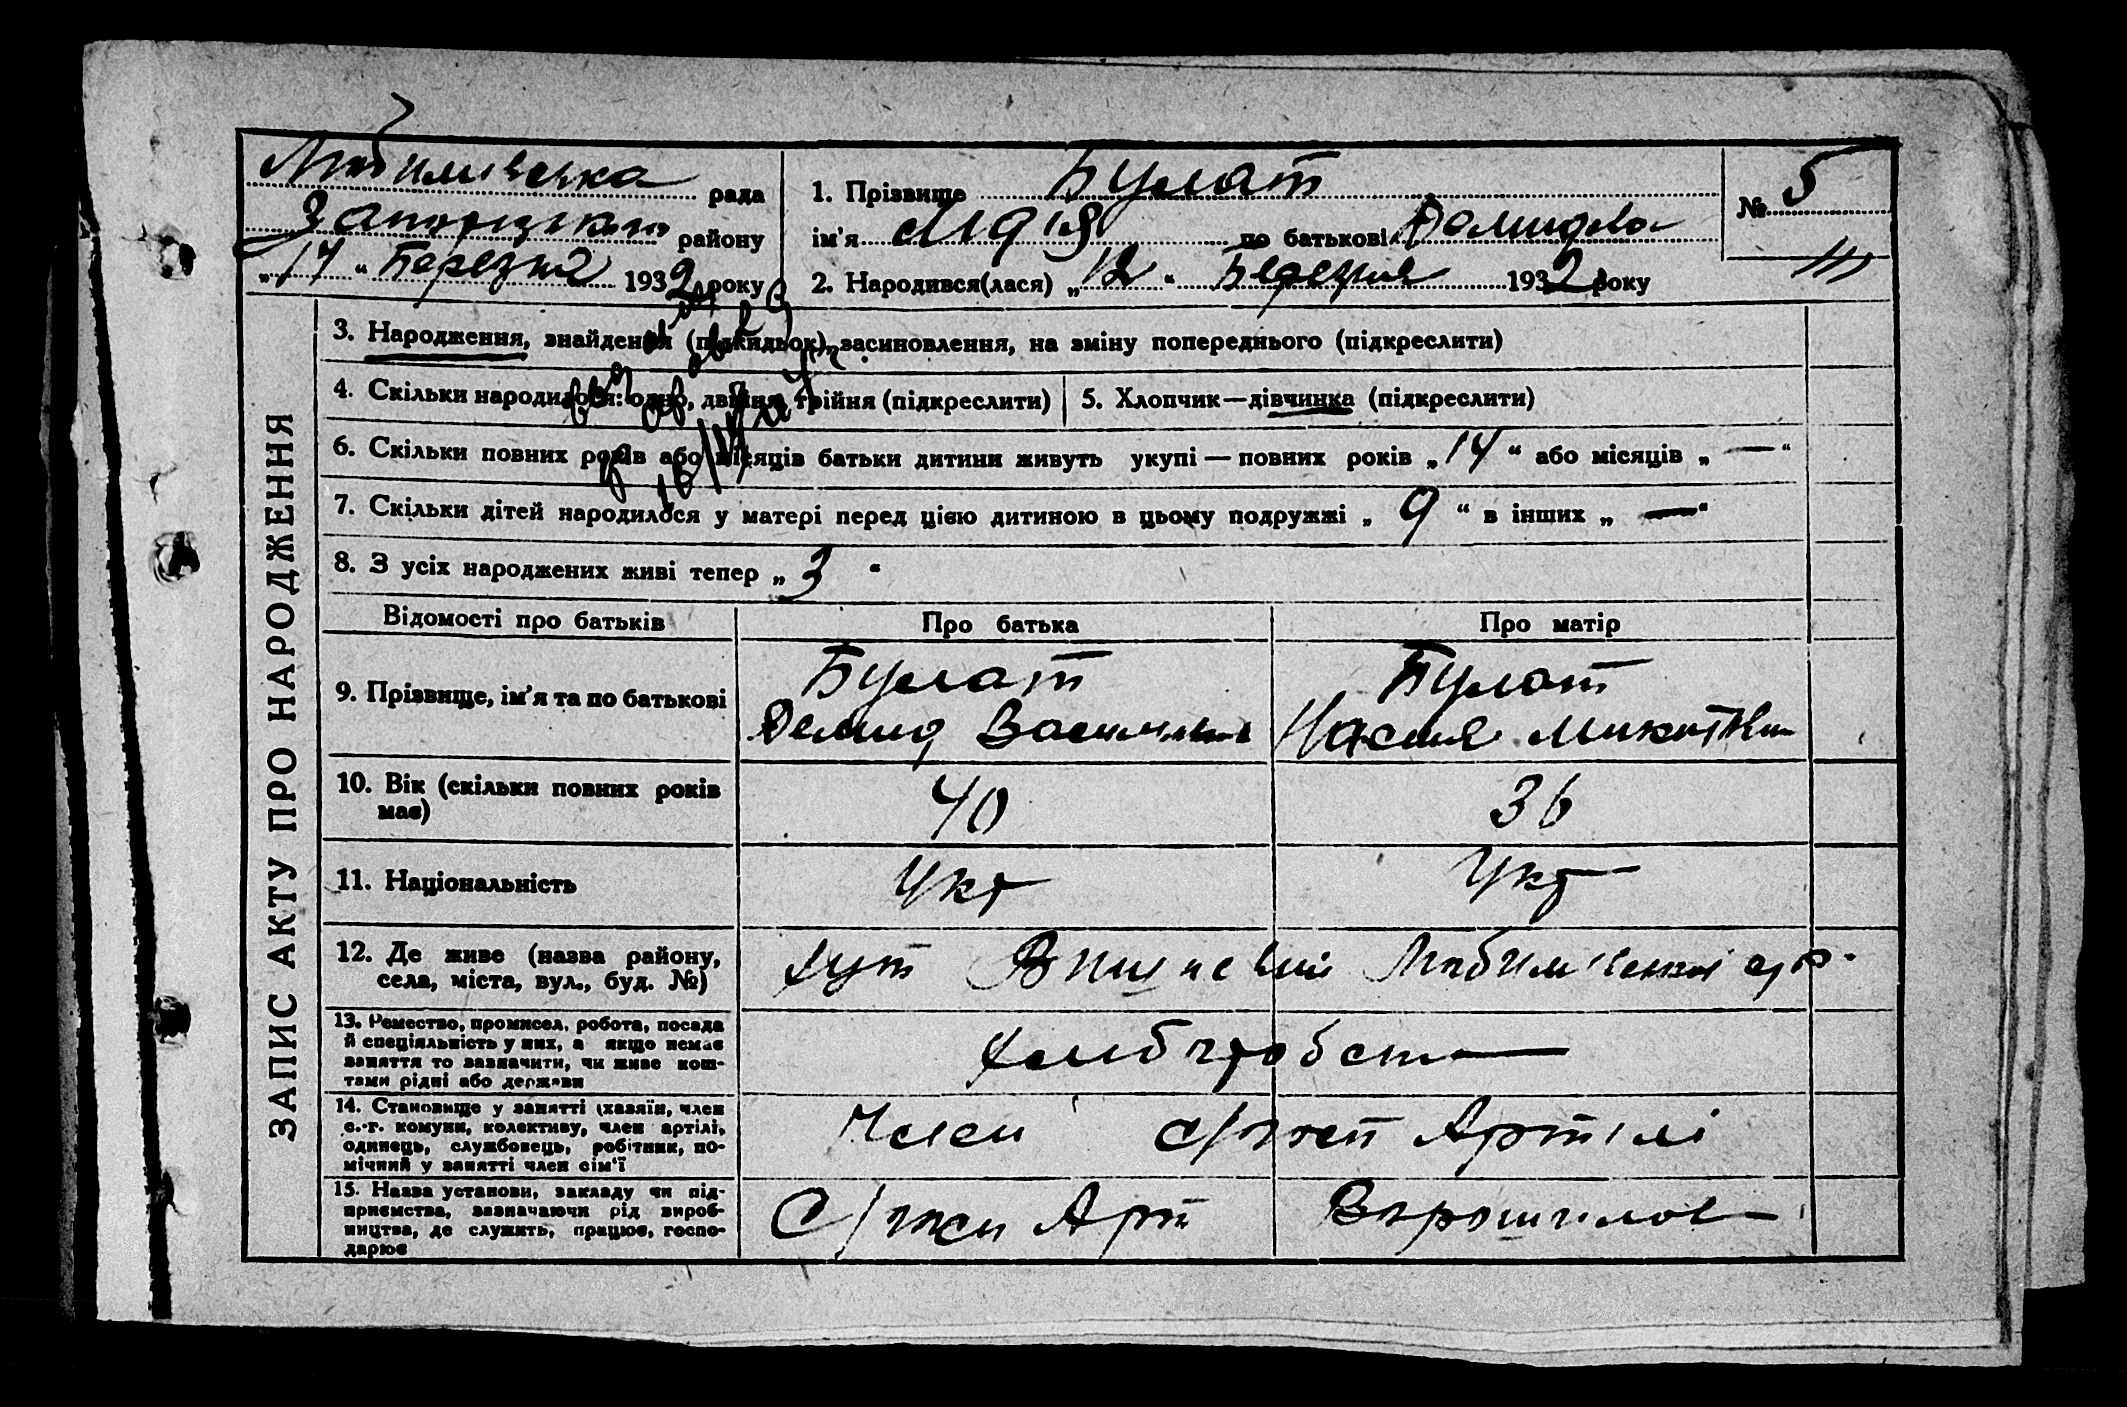 Любимівська рада
Запорізького району
„17“ Березня 1932 року
1. Прізвище Булат
ім'я Марія по батькові Демидова
№ 5
2. Народився(лася) „12“ Березня 1932 року
III
ЗАПИС АКТУ ПРО НАРОДЖЕННЯ
3. Народження, знайдення (підкидьок), засиновлення, на зміну попереднього (підкреслити)
4. Скільки народилося: одно, двійня, трійня (підкреслити)
5. Хлопчик—дівчинка (підкреслити)
6. Скільки повних років або місяців батьки дитини живуть укупі — повних років „14“ або місяців „—“
7. Скільки дітей народилося у матері перед цією дитиною в цьому подружжі „9“ в інших „—“
8. З усіх народжених живі тепер „3“
Відомості про батьків Про батька Про матір
9. Прізвище, ім'я та по батькові
Булат
Демид Василів
Булат
Настя Микит
10. Вік (скільки повних років
має)
40 36
11. Національність Укр Укр
12. Де живе (назва району,
села, міста, вул., буд. №)
хут Вишневий Любимівської с/р.
13. Ремество, промисел, робота, посада
й спеціяльність у них, а якщо немає
заняття то зазначити, чи живе кош-
тами рідні або держави
хліборобст—
14. Становище у занятті (хазяїн, член
с.-г. комуни, колективу, член артілі,
одинець, службовець, робітник, по-
мічний у занятті член сім'ї
Члени Артілі
15. Назва установи, закладу чи під-
приємства, зазначаючи рід вироб-
ництва, де служить, працює, госпо-
дарює
Арт Ворошилов